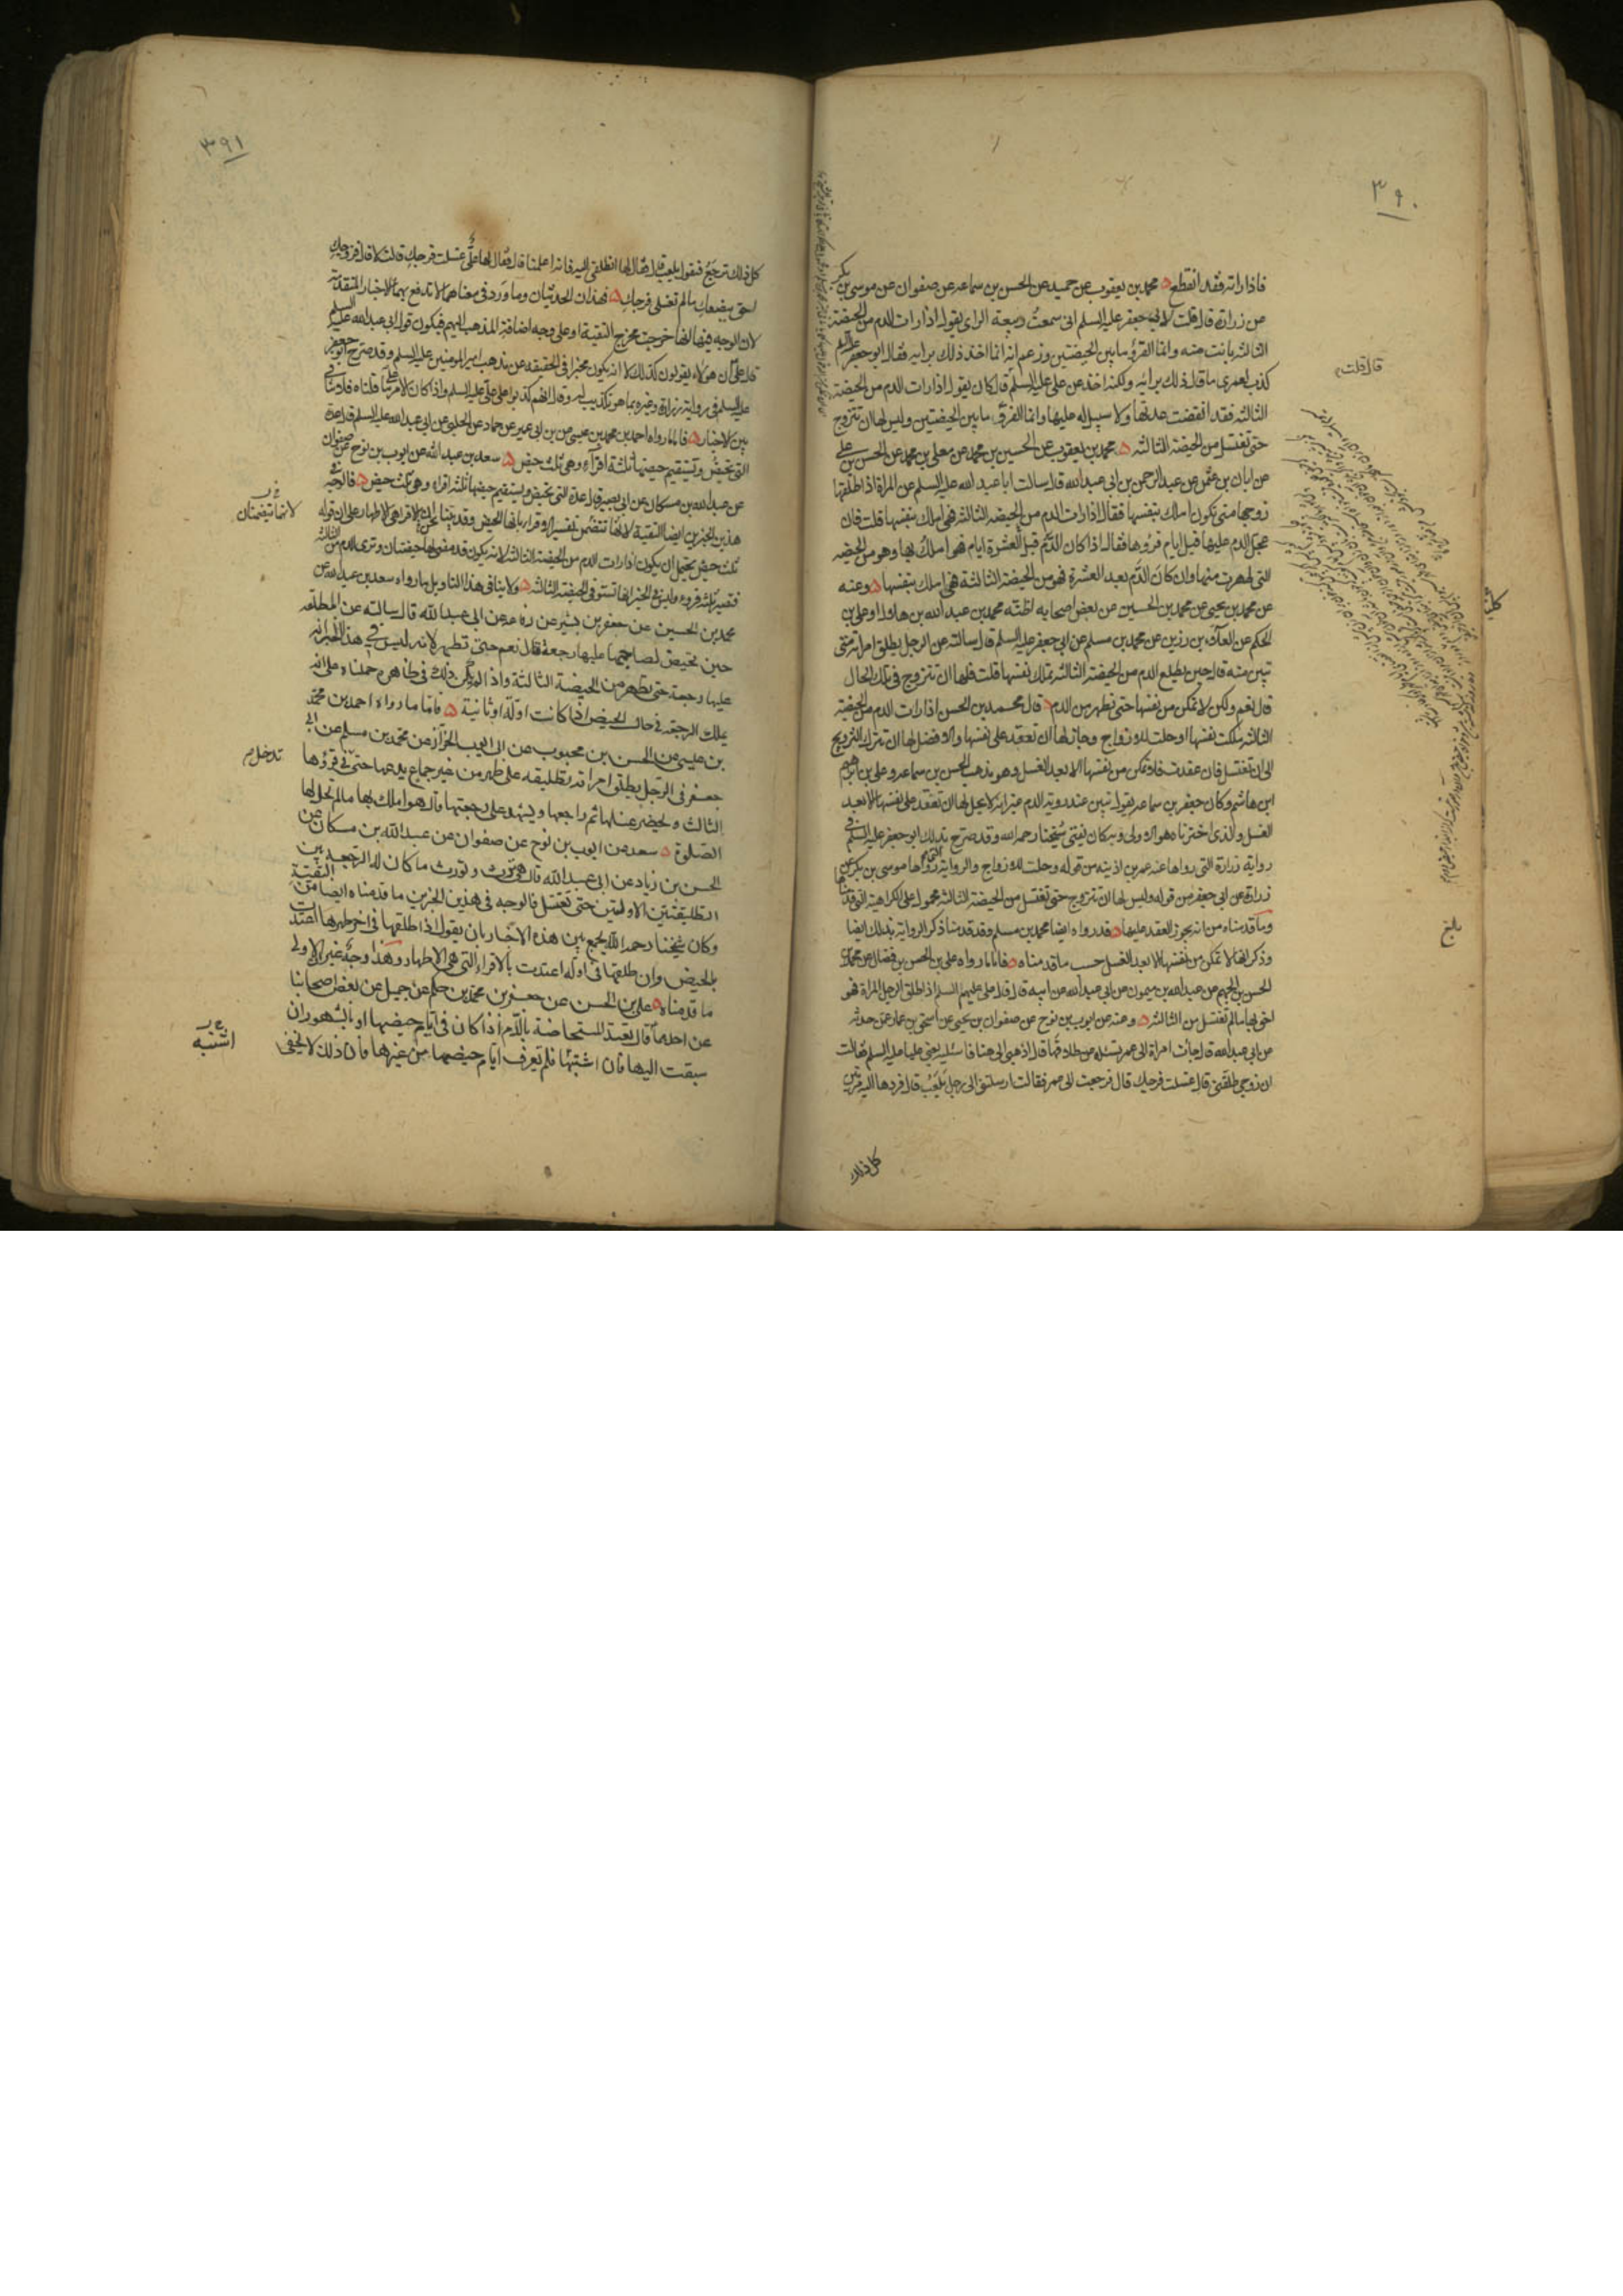 ٣٩٠
فاذا راته فقد انقطع محمد بن يعقوب عن حميد عن الحسن بن سماعه عن صفوان عن موسى بن بكر
عن زرارة قال قلت لابي جعفر عليه السلم انى سمعت ربيعة الراى يقول اذا رات الدم من الحيضة
الثالثه بانت منه وانما القرؤ ما بين الحيضتين وزعم انه انما اخذ ذلك برايه فقال ابو جعفر عليه السلم
كذب لعمرى ما قال ذلك برائه ولكنه اخذ عن على عليه السلم قال كان يقول اذا رات الدم من الحيضة
الثالثه فقد انقضت عدتها ولا سبيل له عليها وانما القرؤ ما بين الحيضتين وليس لها ان تتزوج
حتى تغتسل من الحيضة الثالثه محمد بن يعقوب عن الحسين بن محمد عن معلى بن محمد عن الحسن بن على
عن ابان بن عثمن عن عبد الرحمن بن ابى عبد الله قال سالت ابا عبد الله عليه السلم عن المراة اذا طلقها
زوجها متى تكون املك بنفسها فقال اذا رات الدم من الحيضه الثالثه فهى املك بنفسها قلت فان
عجل الدم عليها قبل ايام قرؤها فقال اذا كان الدم قبل العشرة ايام فهى املك بها وهو من الحيضه
التى طهرت منها وان كان الدم بعد العشرة فهو من الحيضة الثالثة فهى املك بنفسها وعنه
عن محمد بن يحيى عن محمد بن الحسين عن بعض اصحابه اظنه محمد بن عبد الله بن هلال او على بن
الحكم عن العلاء بن رزين عن محمد بن مسلم عن ابى جعفر عليه السلم قال سالته عن الرجل يطلق امراته متى
تبين منه قال حين يطلع الدم من الحيضة الثالثه تملك نفسها قلت فلها ان تتزوج فى تلك الحال
قال نعم ولكن لا تمكن من نفسها حتى تطهر من الدم قال محمد بن الحسن اذا رات الدم من الحيضة
الثالثه ملكت نفسها وحلت للازواج وجاز لها ان تعقد على نفسها والافضل لها ان تترك التزويج
الى ان تغتسل فان عقدت فلا تمكن من نفسها الا بعد الغسل وهو مذهب الحسن بن سماعه وعلى بن ابرهيم
ابن هاشم وكان جعفر بن سماعه يقول تبين عند رويه الدم غير انه لا يحل لها ان تعقد على نفسها الا بعد
الغسل والذى اخترناه هو الاولى وبه كان يفتى شيخنا رحمه الله وقد صرح بذلك ابو جعفر عليه السلم فى
رواية زرارة التى رواها عنه عمر بن اذينه من قوله وحلت للازواج والرواية التى رواها موسى بن بكر عن
زرارة عن ابى جعفر من قوله وليس لها ان تتزوج حتى تغتسل من الحيضة الثالثه محمول على الكراهية التى قدمناها
وما قدمناه من انه يجوز العقد عليها قد رواه ايضا محمد بن مسلم وقد قدمنا ذكر الرواية بذلك ايضا
وذكر انها لا تمكن من نفسها الا بعد الغسل حسب ما قدمناه فاما ما رواه على بن الحسن بن فضال عن محمد بن
الحسن بن الجهم عن عبد الله بن ميمون عن ابى عبد الله عن ابيه قال قال على عليهم السلم اذا طلق الرجل المراة فهو
احق بها ما لم تغتسل من الثالثه وعنه عن ايوب بن نوح عن صفوان بن يحيى عن اسحق بن عمار عمن حدثه
عن ابى عبد الله قال جاءت امراة الى عمر تسئله عن طلاقها قال اذهبى الى هذا فاسئليه يعنى عليا عليه السلم فقالت
ان زوجى طلقنى قال غسلت فرجك قال فرجعت الى عمر فقالت ارسلتنى الى رجل يلعب قال فردها اليه مرتين
كل ذلك
قال قلت
بلغ
٣٩١
كل ذلك ترجع فتقول يلعب قال فقال لها انطلقى اليه فانه اعلمنا قال فقال لها على غسلت فرجك قالت لا قال فزوجك
احق ببضعك ما لم تغسلى فرجك فهذان الحديثان وما ورد فى معناهما لا تدفع بهما الاخبار المتقدمة
لان الوجه فيهما انها خرجت مخرج التقية او على وجه اضافة المذهب اليهم فيكون قول ابى عبد الله عليه السلم
قال على ان هولاء يقولون كذلك لا انه يكون مخبرا فى الحقيقه عن مذهب امير المومنين عليه السلم وقد صرح ابو جعفر
عليه السلم فى رواية زرارة وغيره بما هو تكذيب لهم وقال انهم كذبوا على على عليه السلم واذا كان الامر على ما قلناه فلا تنافى
بين الاخبار فاما ما رواه احمد بن محمد بن عيسى عن ابن ابى عمير عن حماد عن الحلبى عن ابى عبد الله عليه السلم قال عدة
التى تحيض وتستقيم حيضها ثلثة اقرآء وهى ثلث حيض سعد بن عبد الله عن ايوب بن نوح عن صفوان
عن عبد الله بن مسكان عن ابى بصير قال عدة التى تحيض ويستقيم حيضها ثلثه اقراء وهى ثلث حيض فالوجه فى
هذين الخبرين ايضا التقية لانها تتضمن تفسير الاقراء بانها الحيض وقد بينا نحن ان الاقراء هى الاطهار على ان قوله
ثلث حيض يحتمل ان يكون اذا رات الدم من الحيضة الثالثه لانه يكون قد مضى لها حيضتان وترى الدم من الثالثه
فتصير ثلثه قروء وليس فى الخبر انها تستوفى الحيضة الثالثه ولا ينافى هذا التاويل ما رواه سعد بن عبد الله عن
محمد بن الحسين عن جعفر بن بشير عن رفاعه عن ابى عبد الله قال سالته عن المطلقه
حين تحيض لصاحبها عليها رجعة قال نعم حتى تطهر لانه ليس فى هذا الخبر انه
عليها رجعة حتى تطهر من الحيضة الثالثة واذا لم يكن ذلك فى ظاهره حملناه على انه
يملك الرجعة فى حال الحيض اذا كانت اولة او ثانية فاما ما رواه احمد بن محمد
بن عيسى عن الحسن بن محبوب عن ابى ايوب الخزاز عن محمد بن مسلم عن ابى
جعفر فى الرجل يطلق امراته تطليقه على طهر من غير جماع يدعها حتى فى قرؤها
الثالث ويحضر غسلها ثم راجعها ويشهد على رجعتها قال هو املك بها ما لم تحل لها
الصلوة سعد عن ايوب بن نوح عن صفوان عن عبد الله بن مسكان عن
الحسن بن زياد عن ابى عبد الله قال هى ترث وتورث ما كان له الرجعة بين
التطليقتين الاولتين حتى تغتسل فالوجه فى هذين الخبرين ما قدمناه ايضا من التقية
وكان شيخنا رحمه الله يجمع بين هذه الاخبار بان يقول اذا طلقها فى اخر طهرها اعتدت
بالحيض وان طلقها فى اوله اعتدت بالاقراء التى هى الاطهار وهذا وجه غير ان الاولى
ما قدمناه على بن الحسن عن جعفر بن محمد بن حكيم عن جميل عن بعض اصحابنا
عن احدهما قال تعتد المستحاضة بالدم اذا كان فى ايام حيضها او بالشهور ان
سبقت اليها فان اشتبها فلم تعرف ايام حيضها من غيرها فان ذلك لا يخفى
لانهما تتضمنان
تدخل
اشتبه